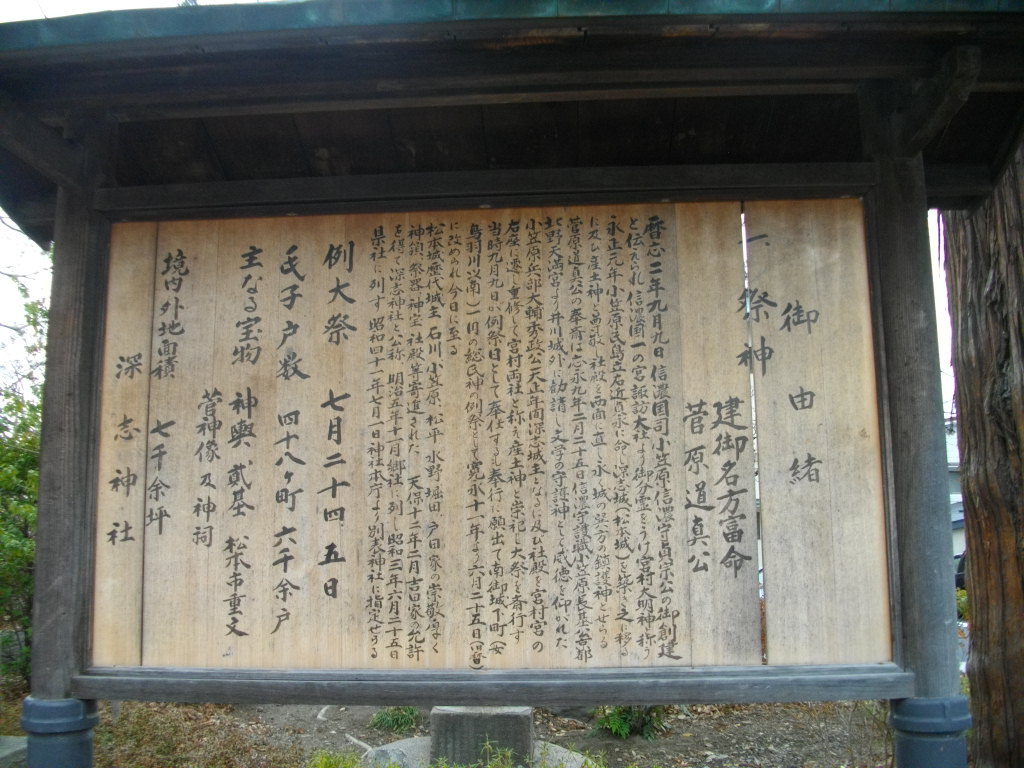 御由緒
一、祭神
建御名方富命
菅原道真公
暦応二年九月九日信濃国司小笠原信濃守貞宗公の御創建
と伝えられ信濃国一の宮諏訪大社より御分霊をうけ宮村大明神と称う
永正元年小笠原氏島立右近貞永に命じ深志城(松本城)を築き之に移る
に及び産土神と尊敬 社殿を西面に直し永く城の巽方の鎮護神とせらる
菅原道真公の奉斎は応永九年二月二十五日信濃守護職小笠原長基公 京都
北野天満宮より井川城外に勧請し文学の守護神として威徳を仰がれた
小笠原兵部大輔秀政公天正年間深志城主となるに及び社殿を宮村宮の
右座に遷し重修して宮村両社と称え産土神と崇祀し大祭を斎行す
当時九月九日が例祭日として奉仕するも奉行に願出て南御城下町(女
鳥羽川以南)一円の総氏神の例祭として寛永十一年より六月二十五日(旧暦)
に改められ今日に至る
松本城歴代城主 石川 小笠原、松平 水野 堀田 戸田 家の崇敬篤く
神領 祭器 神宝 社殿等寄進された 天保十二年二月吉田家の允許
を得て深志神社と公称 明治五年十一月郷社に列し昭和三年六月二十五日
県社に列す 昭和四十一年七月一日神社本庁より別表神社に指定せらる
例大祭 七月二十四、五日
氏子戸数 四十八ヶ町 六千余戸
主なる宝物 神輿 貳基 松本市重文
菅神像及神祠
境内外地面積 七千余坪
深志神社